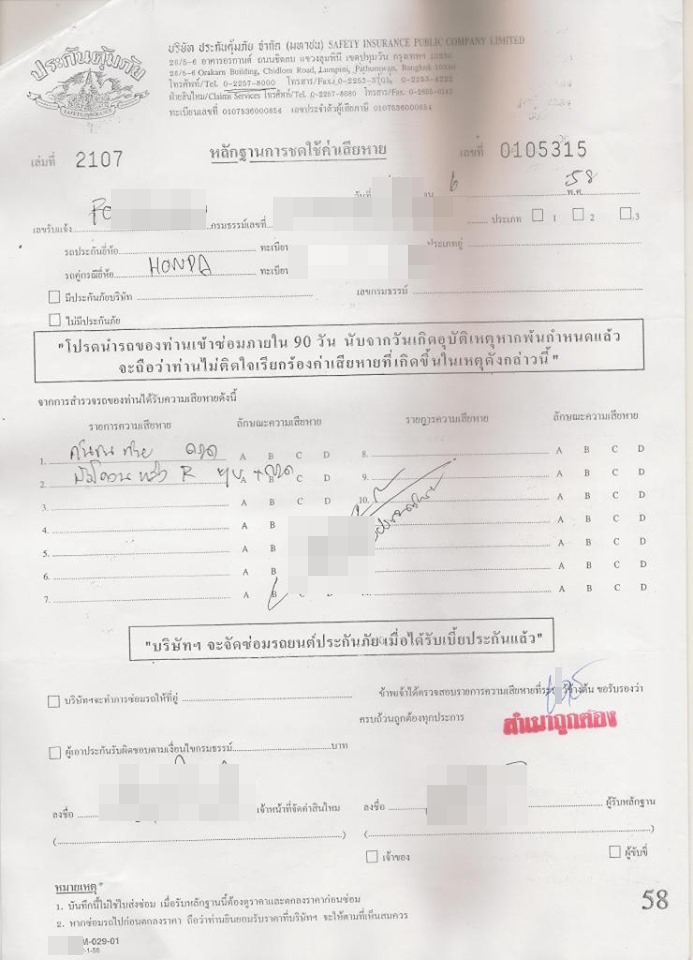 ประกันคุ้มภัย
SAFETY INSURANCE
บริษัท ประกันคุ้มภัย จำกัด (มหาชน) SAFETY INSURANCE PUBLIC COMPANY LIMITED
26/5-6 อาคารอรกานต์ ถนนชิดลม แขวงลุมพินี เขตปทุมวัน กรุงเทพฯ 10330
26/5-6 Orakarn Building, Chidlom Road, Lumpini, Pathumwan, Bangkok 10330
โทรศัพท์/Tel. 0-2257-8000 โทรสาร/Fax.
ฝ่ายสินไหม/Claims Services โทรศัพท์/Tel. 0-2257-8080 โทรสาร/Fax.
ทะเบียนเลขที่ 0107536000854 เลขประจำตัวผู้เสียภาษี
เล่มที่ 2107 หลักฐานการชดใช้ค่าเสียหาย เลขที่ 0105315
วันที่ 6 พ.ศ. 58
เลขรับแจ้ง กรมธรรม์เลขที่ ประเภท 1 2 3
รถประกันยี่ห้อ ทะเบียน ประเภทอู่
รถคู่กรณียี่ห้อ HONDA ทะเบียน
มีประกันภัยบริษัท เลขกรมธรรม์
ไม่มีประกันภัย
"โปรดนำรถของท่านเข้าซ่อมภายใน 90 วัน นับจากวันเกิดอุบัติเหตุหากพ้นกำหนดแล้ว
จะถือว่าท่านไม่ติดใจเรียกร้องค่าเสียหายที่เกิดขึ้นในเหตุดังกล่าวนี้"
จากการสำรวจรถของท่านได้รับความเสียหายดังนี้
รายการความเสียหาย ลักษณะความเสียหาย รายการความเสียหาย ลักษณะความเสียหาย
1. A B C D 8. A B C D
2. R A B 9. A B C D
3. A B C D 10. A B C D
4. A B A B C D
5. A B A B C D
6. A B A B C D
7. A B A B C D
"บริษัทฯ จะจัดซ่อมรถยนต์ประกันภัยเมื่อได้รับเบี้ยประกันแล้ว"
บริษัทฯจะทำการซ่อมรถให้ที่อู่ ข้าพเจ้าได้ตรวจสอบรายการความเสียหายที่ระบุข้างต้น ขอรับรองว่า
ครบถ้วนถูกต้องทุกประการ
สำเนาถูกต้อง
ผู้เอาประกันรับผิดชอบตามเงื่อนไขกรมธรรม์ บาท
ลงชื่อ เจ้าหน้าที่จัดค่าสินไหม ลงชื่อ ผู้รับหลักฐาน
เจ้าของ ผู้ขับขี่
หมายเหตุ
1. บันทึกนี้ไม่ใช่ใบสั่งซ่อม เมื่อรับหลักฐานนี้ต้องดูราคาและตกลงราคาก่อนซ่อม
2. หากซ่อมรถไปก่อนตกลงราคา ถือว่าท่านยินยอมรับราคาที่บริษัทฯ จะให้ตามที่เห็นสมควร
58
M-029-01
-1-55